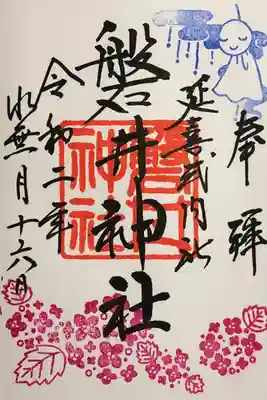 奉拝
延喜式内社
磐井神社
磐井神社
令和二年
水無月十六日